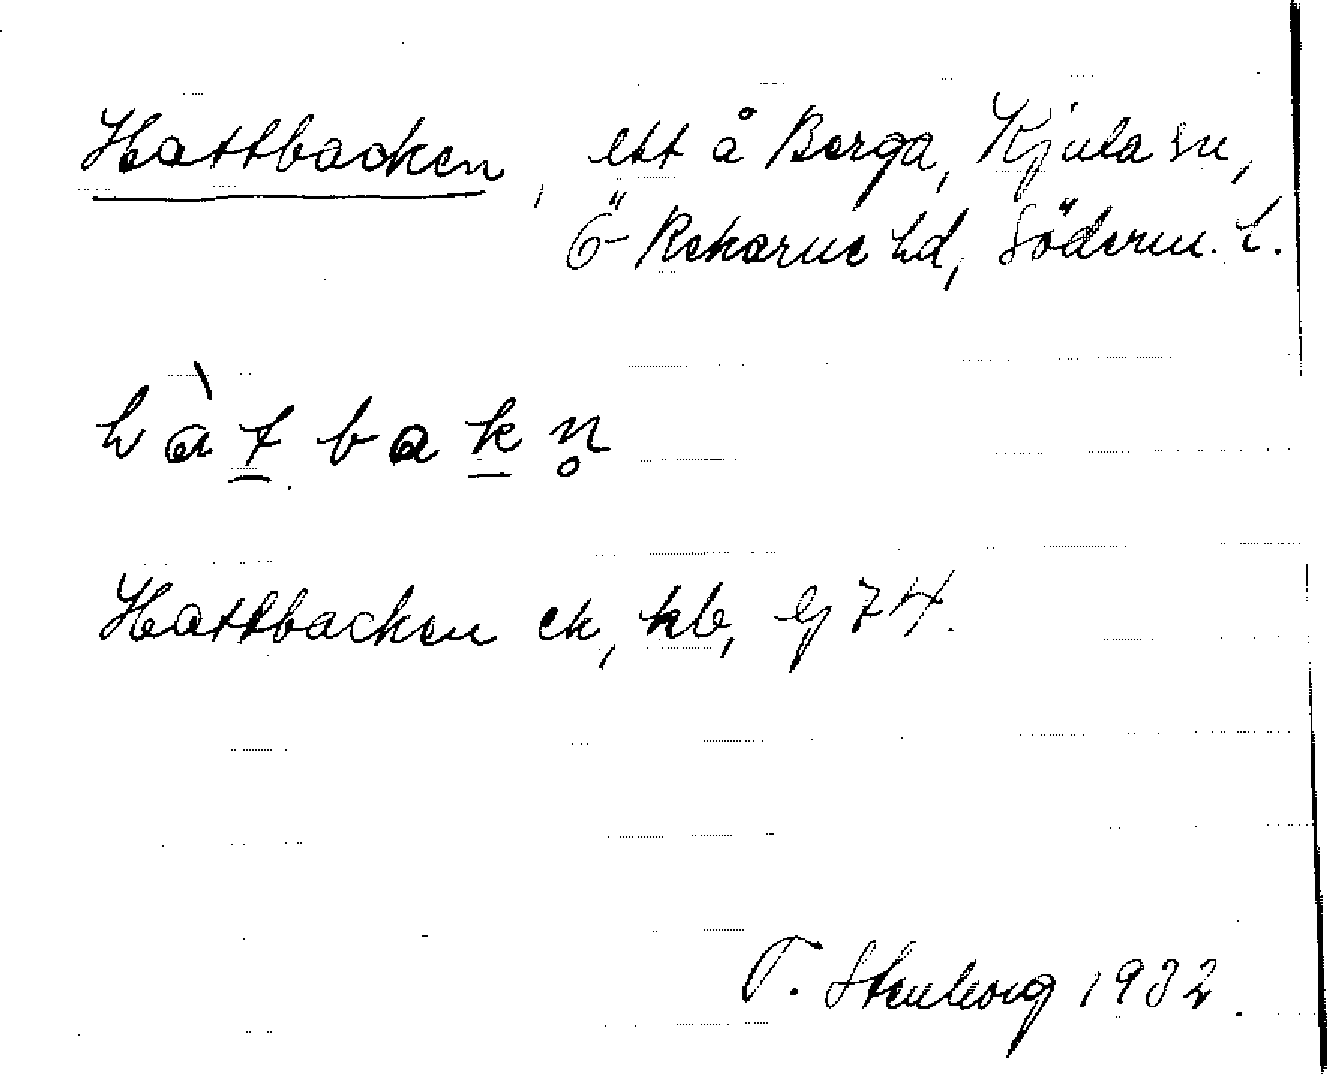 Hattbacken, ett å Berga, Kjula sn,
Ö-Rekarne hd, Söderm. l.
hàt bakn̥
Hattbacken ek, kb, lj 74.
T. Stenborg 1932.